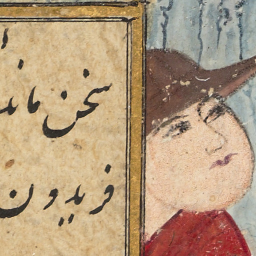 سخن ماند
فریدون